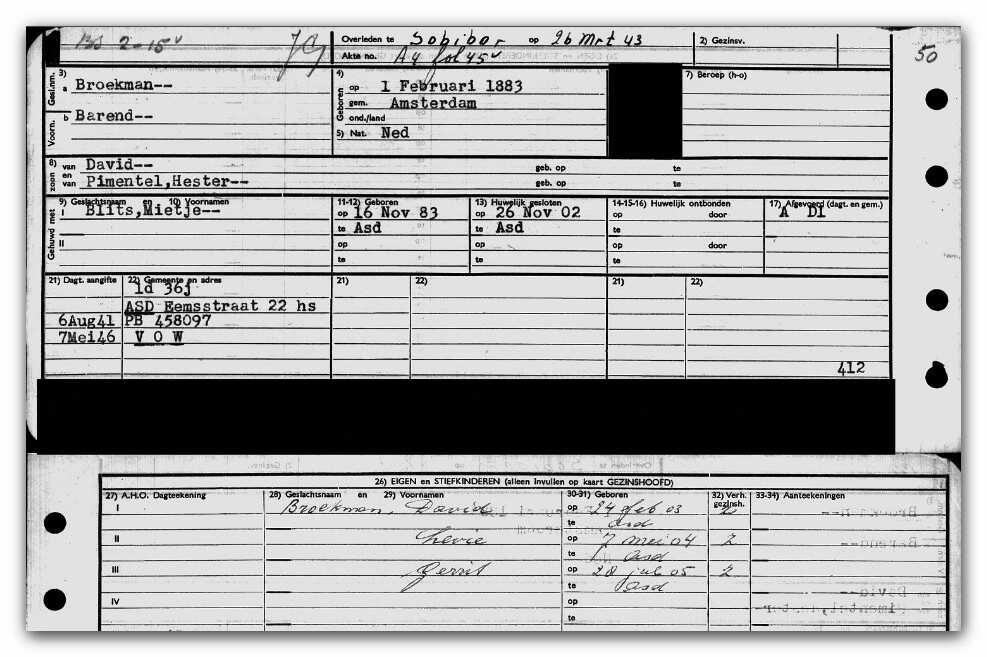 2-15v
Overleden te Sobibor op 26 Mrt 43
2) Gezinsv.
Akte no. A4 fol 45v
50
Gesl.nm.
3)
a Broekman--
Voorn.
b Barend--
4)
Geboren
op 1 Februari 1883
gem. Amsterdam
ond./land
5) Nat. Ned
7) Beroep (h-o)
8)
zoon
van David-- geb. op te
en
van Pimentel,Hester-- geb. op te
Gehuwd met
9) Geslachtsnaam en 10) Voornamen
I Blits,Mietje--
II
11-12) Geboren
op 16 Nov 83
te Asd
op
te
13) Huwelijk gesloten
op 26 Nov 02
te Asd
op
te
14-15-16) Huwelijk ontbonden
op door
te
op door
te
17) Afgevoerd (dagt. en gem.)
A DI
21) Dagt. aangifte 22) Gemeente en adres 21) 22) 21) 22)
ld 36j
ASD Eemsstraat 22 hs
6Aug41 PB 458097
7Mei46 V O W
412
26) EIGEN en STIEFKINDEREN (alleen invullen op kaart GEZINSHOOFD)
27) A.H.O. Dagteekening 28) Geslachtsnaam en 29) Voornamen 30-31) Geboren 32) Verh. gezinsh. 33-34) Aanteekeningen
I Broekman, David op 24 feb 03 Z
te Asd
II Levie op 7 mei 04 Z
te Asd
III Gerrit op 28 jul 05 Z
te Asd
IV op
te